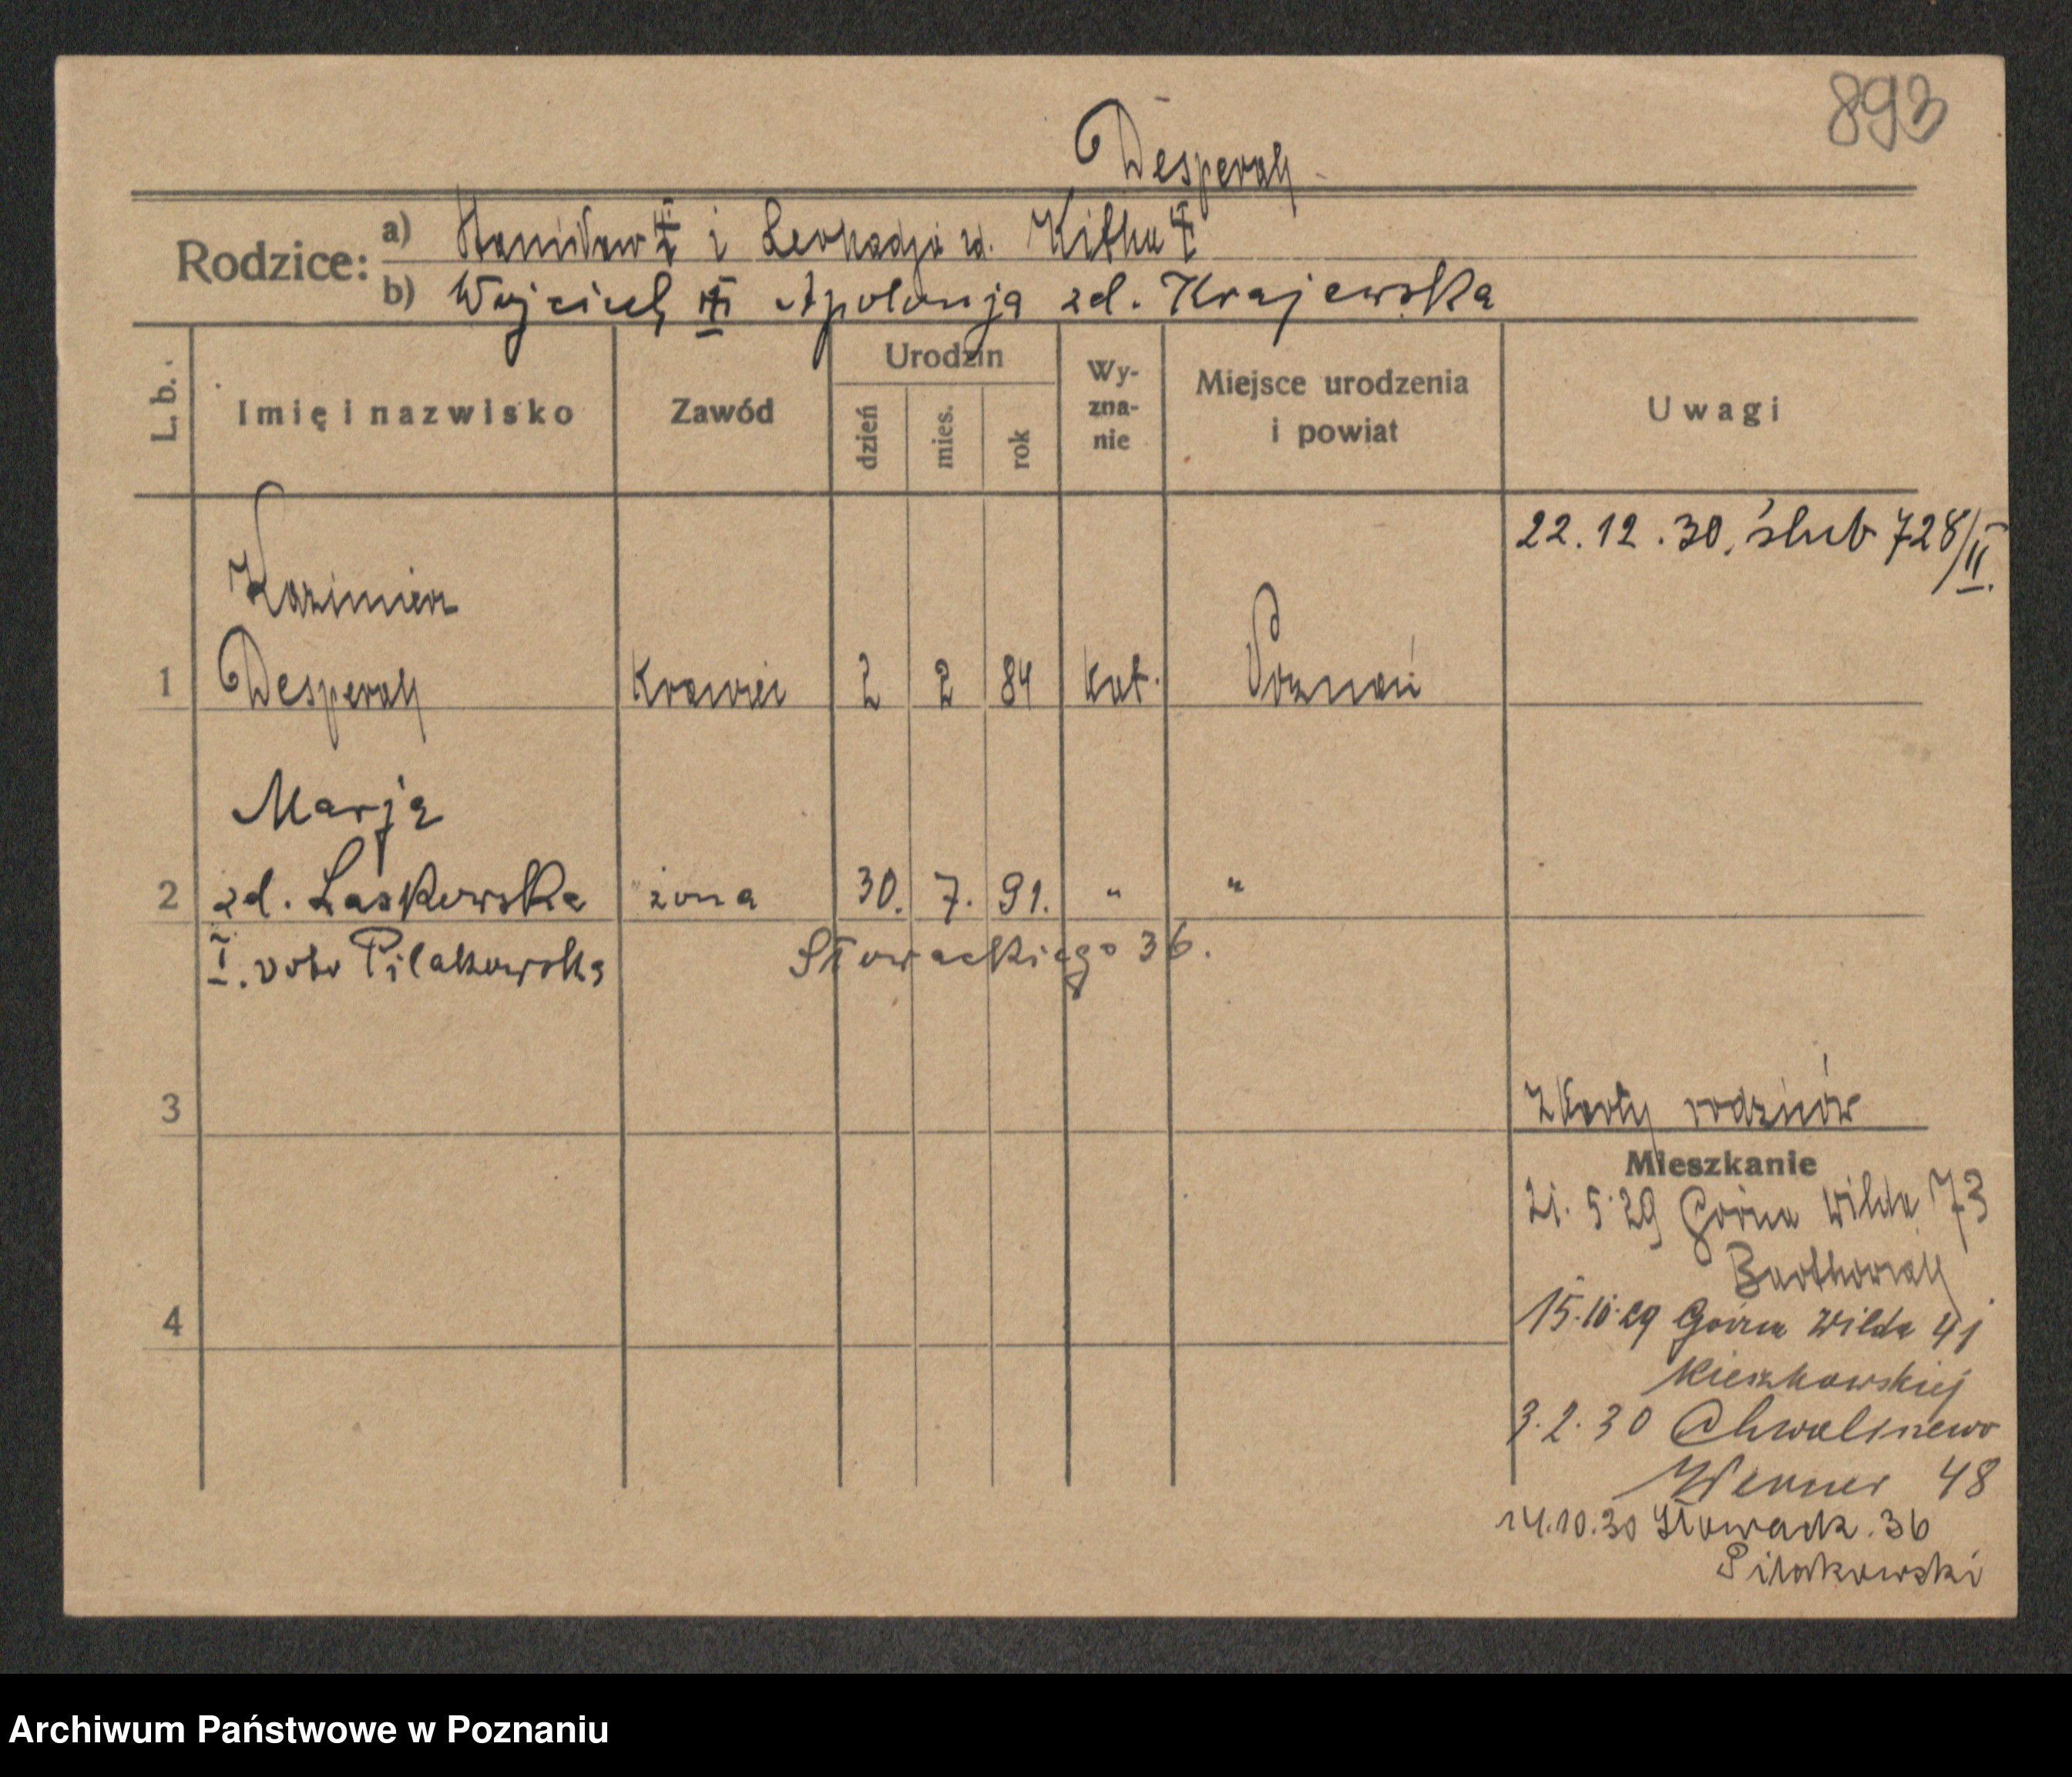 893
Desperak
Rodzice:
a) Stanisław i Leokadja zd.
b) Wojciech Apolonja zd. Krajewska
L. b.
Imię i nazwisko
Zawód
Urodzin
dzień
mies.
rok
Wy-
zna-
nie
Miejsce urodzenia
i powiat
Uwagi
22.12.30. ślub 728/II.
Kazimierz
1 Desperak Krawiec 2 2 84 kat. Poznań
Marja
2 zd. Laskowska żona 30. 7. 91. " "
I. voto Pilakowska Słowackiego 36.
3
Z Karty rodziców
Mieszkanie
21.5.29 Górna Wilda 73
15.10.29 Górna Wilda 41
4
Kieszkowskiej
3.2.30 Chwaliszewo
Werner 48
14.10.30 Słowack. 36
Pilakowski
Archiwum Państwowe w Poznaniu